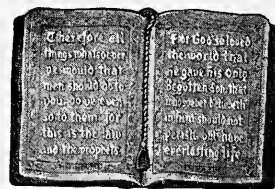 Therefore all
things whatsoever
ye would that
men should do to
you, do ye even
so to them for
this is the law
and the prophets
For God so loved
the world that
he gave his only
begotten Son that
whosoever believeth
in him should not
perish but have
everlasting life